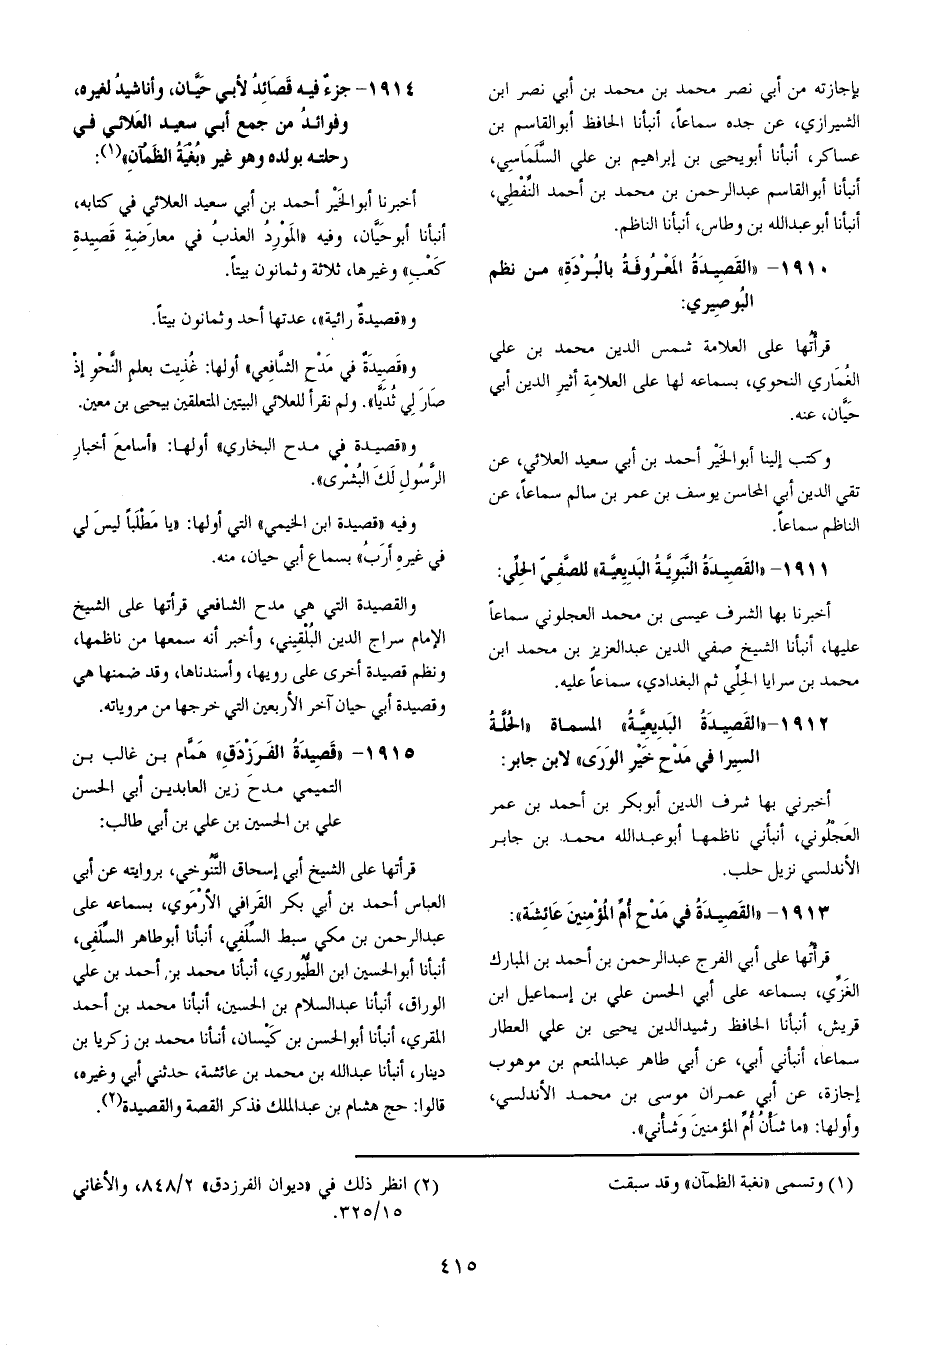 بإجازته من أبي نصر محمد بن محمد بن أبي نصر ابن
الشيرازي، عن جده سماعاً، أنبأنا الحافظ أبوالقاسم بن
عساكر، أنبأنا أبويحيى بن إبراهيم بن علي السَّلَمَاسي،
أنبأنا أبوالقاسم عبدالرحمن بن محمد بن أحمد النَّفْطِي،
أنبأنا أبوعبدالله بن وطاس، أنبأنا الناظم.
١٩١٠- «القَصِيدَةُ المَعْرُوفَةُ بالبُرْدَةِ» من نظم
البُوصيري:
قرأتُها على العلامة شمس الدين محمد بن علي
الغُمَاري النحوي، بسماعه لها على العلامة أثير الدين أبي
حَيَّان، عنه.
وكتب إلينا أبوالخَيْر أحمد بن أبي سعيد العلائي، عن
تقي الدين أبي المحاسن يوسف بن عمر بن سالم سماعاً، عن
الناظم سماعاً.
١٩١١- «القَصِيدَةُ النَّبَوِيَّةُ البَدِيعِيَّة» للصَّفِيّ الحِلِّي:
أخبرنا بها الشرف عيسى بن محمد العجلوني سماعاً
عليها، أنبأنا الشيخ صفي الدين عبدالعزيز بن محمد ابن
محمد بن سرايا الحِلِّي ثم البغدادي، سماعاً عليه.
١٩١٢-«القَصِيدَةُ البَدِيعِيَّةُ» المسماة «الحُلَّةُ
السيرا في مَدْحِ خَيْرِ الوَرَى» لابن جابر:
أخبرني بها شرف الدين أبوبكر بن أحمد بن عمر
العَجْلُوني، أنبأني ناظمها أبوعبدالله محمد بن جابر
الأندلسي نزيل حلب.
١٩١٣- «القَصِيدَةُ في مَدْحِ أُمِّ المُؤْمِنِينَ عَائِشَة»:
قرأتُها على أبي الفرج عبدالرحمن بن أحمد بن المبارك
الغَزِّي، بسماعه على أبي الحسن علي بن إسماعيل ابن
قريش، أنبأنا الحافظ رشيدالدين يحيى بن علي العطار
سماعاً، أنبأني أبي، عن أبي طاهر عبدالمنعم بن موهوب
إجازة، عن أبي عمران موسى بن محمد الأندلسي،
وأولها: «ما شَأْنُ أُمِّ المؤمنينَ وَشَأْني».
١٩١٤- جزءٌ فيه قَصَائِدُ لأبي حَيَّان، وأناشيدُ لغيره،
وفوائدُ من جمع أبي سعيد العَلائي في
رحلته بولده وهو غير «بُغْيَةُ الظَمآنِ»(١):
أخبرنا أبوالخَيْر أحمد بن أبي سعيد العلائي في كتابه،
أنبأنا أبوحَيَّان، وفيه «المَوْرِدُ العذبُ في معارَضةِ قَصِيدةِ
كَعْبٍ» وغيرها، ثلاثة وثمانون بيتاً.
و«قصيدةٌ رائية»، عدتها أحد وثمانون بيتاً.
و«قَصِيدَةٌ في مَدْحِ الشَّافعي» أولها: غُذيت بعلم النَّحْوِ إذْ
صَارَ لي ثُدَيًّا». ولم نقرأ للعلائي البيتين المتعلقين بيحيى بن معين.
و«قصيدة في مدح البخاري» أولها: «أسامعَ أخبارِ
الرَّسُولِ لَكَ البُشْرى».
وفيه «قصيدة ابن الخيمي» التي أولها: «يا مَطْلَباً ليسَ لي
في غيرِهِ أرَبُ» بسماع أبي حيان، منه.
والقصيدة التي هي مدح الشافعي قرأتها على الشيخ
الإمام سراج الدين البُلْقِيني، وأخبر أنه سمعها من ناظمها،
ونظم قصيدة أخرى على رويها، وأسندناها، وقد ضمنها هي
وقصيدة أبي حيان آخر الأربعين التي خرجها من مروياته.
١٩١٥- «قَصِيدَةُ الفَرَزْدَقِ» هَمَّام بن غالب بن
التميمي مدحَ زين العابدين أبي الحسن
علي بن الحسين بن علي بن أبي طالب:
قرأتها على الشيخ أبي إسحاق التَّنُوخي، بروايته عن أبي
العباس أحمد بن أبي بكر القَرافي الأُرْمَوي، بسماعه على
عبدالرحمن بن مكي سبط السِّلَفي، أنبأنا أبوطاهر السِّلَفى،
أنبأنا أبوالحسين ابن الطُّيُوري، أنبأنا محمد بن أحمد بن علي
الوراق، أنبأنا عبدالسلام بن الحسين، أنبأنا محمد بن أحمد
المقري، أنبأنا أبوالحسن بن كَيْسان، أنبأنا محمد بن زكريا بن
دينار، أنبأنا عبدالله بن محمد بن عائشة، حدثني أبي وغيره،
قالوا: حج هشام بن عبدالملك فذكر القصة والقصيدة(٢).
(١) وتسمى «نغبة الظمآن» وقد سبقت
(٢) انظر ذلك في «ديوان الفرزدق» ٨٤٨/٢، والأغاني
٣٢٥/١٥.
٤١٥